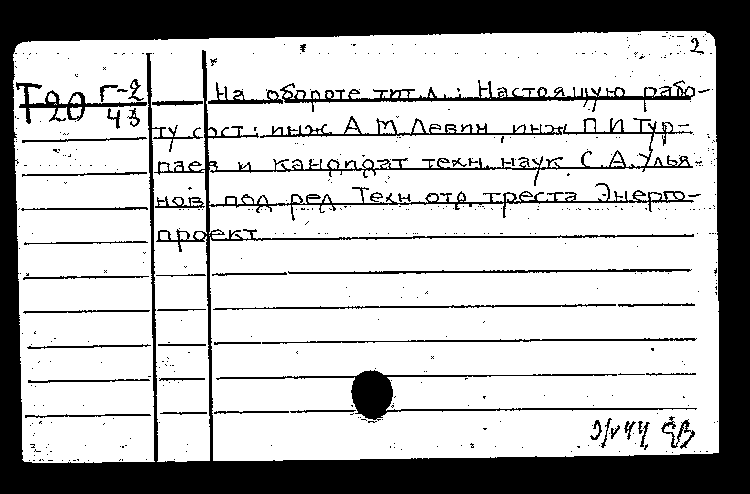 2
Т20 Г-2/43
На обороте тит.л.: Настоящую рабо-
ту сост: инж А.М.Левин, инж П.И Тур-
паев и кандидат техн. наук С.А.Улья-
нов под ред Техн отд. треста Энерго-
проект